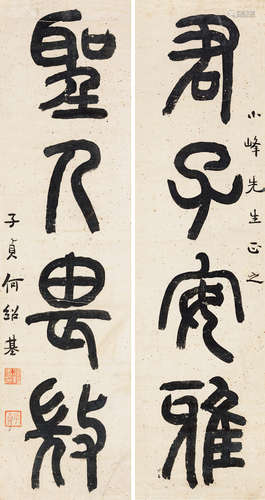 君子安雅
小峰先生正之
聖人畏微
子貞何紹基